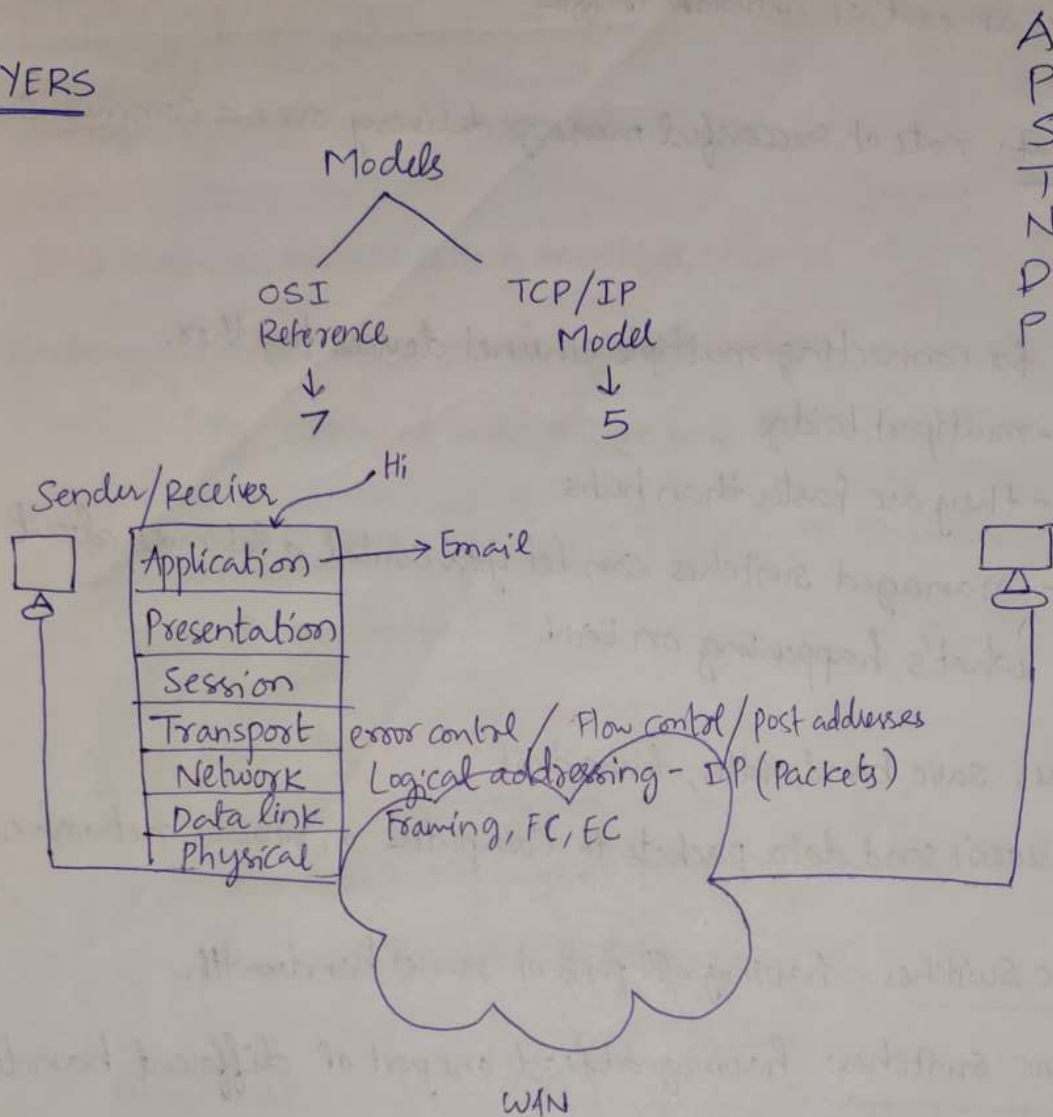 YERS
A
P
S
T
N
D
P
Models
OSI
Reference
↓
7
TCP/IP
Model
↓
5
Sender/Receiver
Hi
Application → Email
Presentation
Session
Transport error control / Flow control / post addresses
Network Logical addressing - IP (Packets)
Data link Framing, FC, EC
Physical
WAN